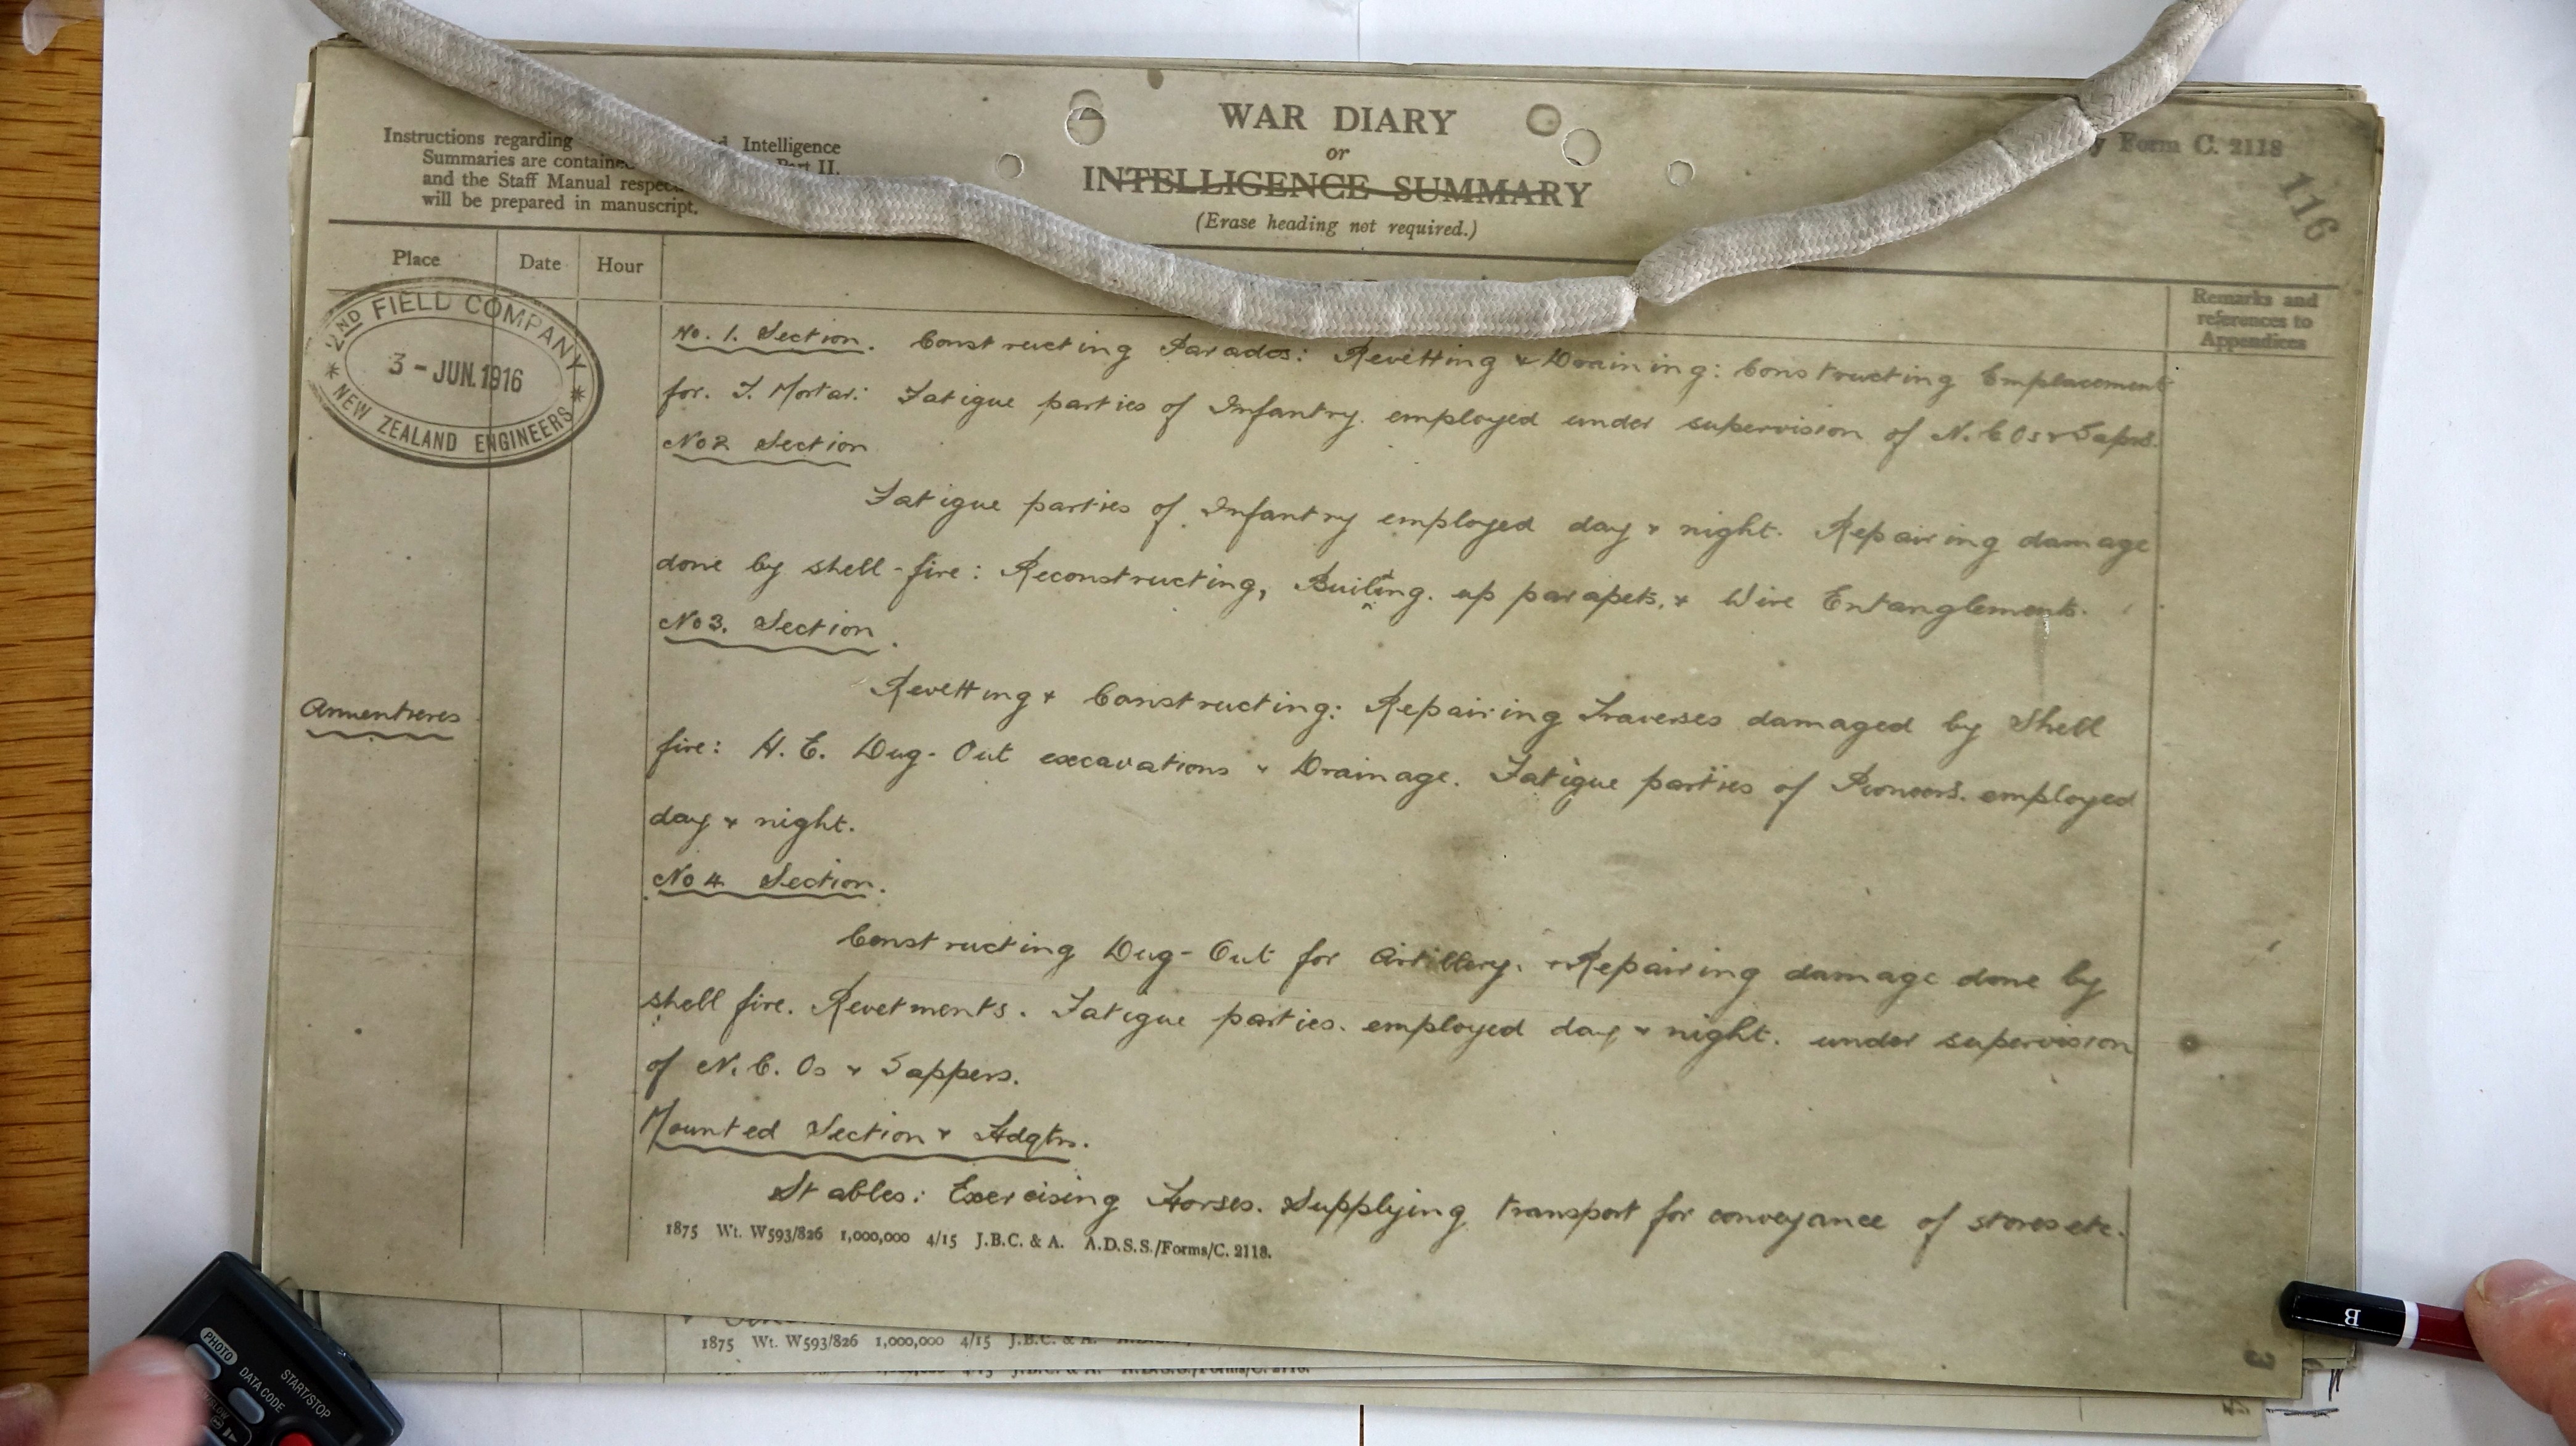 WAR DIARY
or
INTELLIGENCE SUMMARY
(Erase heading not required.)
Instructions regarding d Intelligence
Summaries are contained Part II.
and the Staff Manual respec
will be prepared in manuscript.
y Form C. 2118
116
Place Date Hour
Remarks and
references to
Appendices
2ND FIELD COMPANY
3 - JUN. 1916
NEW ZEALAND ENGINEERS
No. 1. Section. Constructing Parados: Revetting & Draining: Constructing Emplacement
for. T. Mortar: Fatigue parties of Infantry. employed under supervision of N.C.Os & Saprs.
No 2 Section
Fatigue parties of Infantry employed day & night. Repairing damage
done by shell-fire: Reconstructing, Building. up parapets, & Wire Entanglements.
No 3. Section.
Revetting & Constructing: Repairing Traverses damaged by Shell
Armentieres
fire: H. E. Dug-Out excavations & Drainage. Fatigue parties of Pioneers. employed
day & night.
No 4 Section.
Constructing Dug-Out for Artillery. & Repairing damage done by
shell fire. Revetments. Fatigue parties. employed day & night. under supervision
of N. C. Os & Sappers.
Mounted Section & Hdqtrs.
Stables: Exercising Horses. Supplying transport for conveyance of stores etc.
1875 Wt. W593/826 1,000,000 4/15 J.B.C. & A. A.D.S.S./Forms/C. 2118.
3
1875 Wt. W593/826 1,000,000 4/15 J.B.C. & A.
J.B.C. & A. A.D.S.S./Forms/C. 2118.
PHOTO
DATA CODE
START/STOP
B